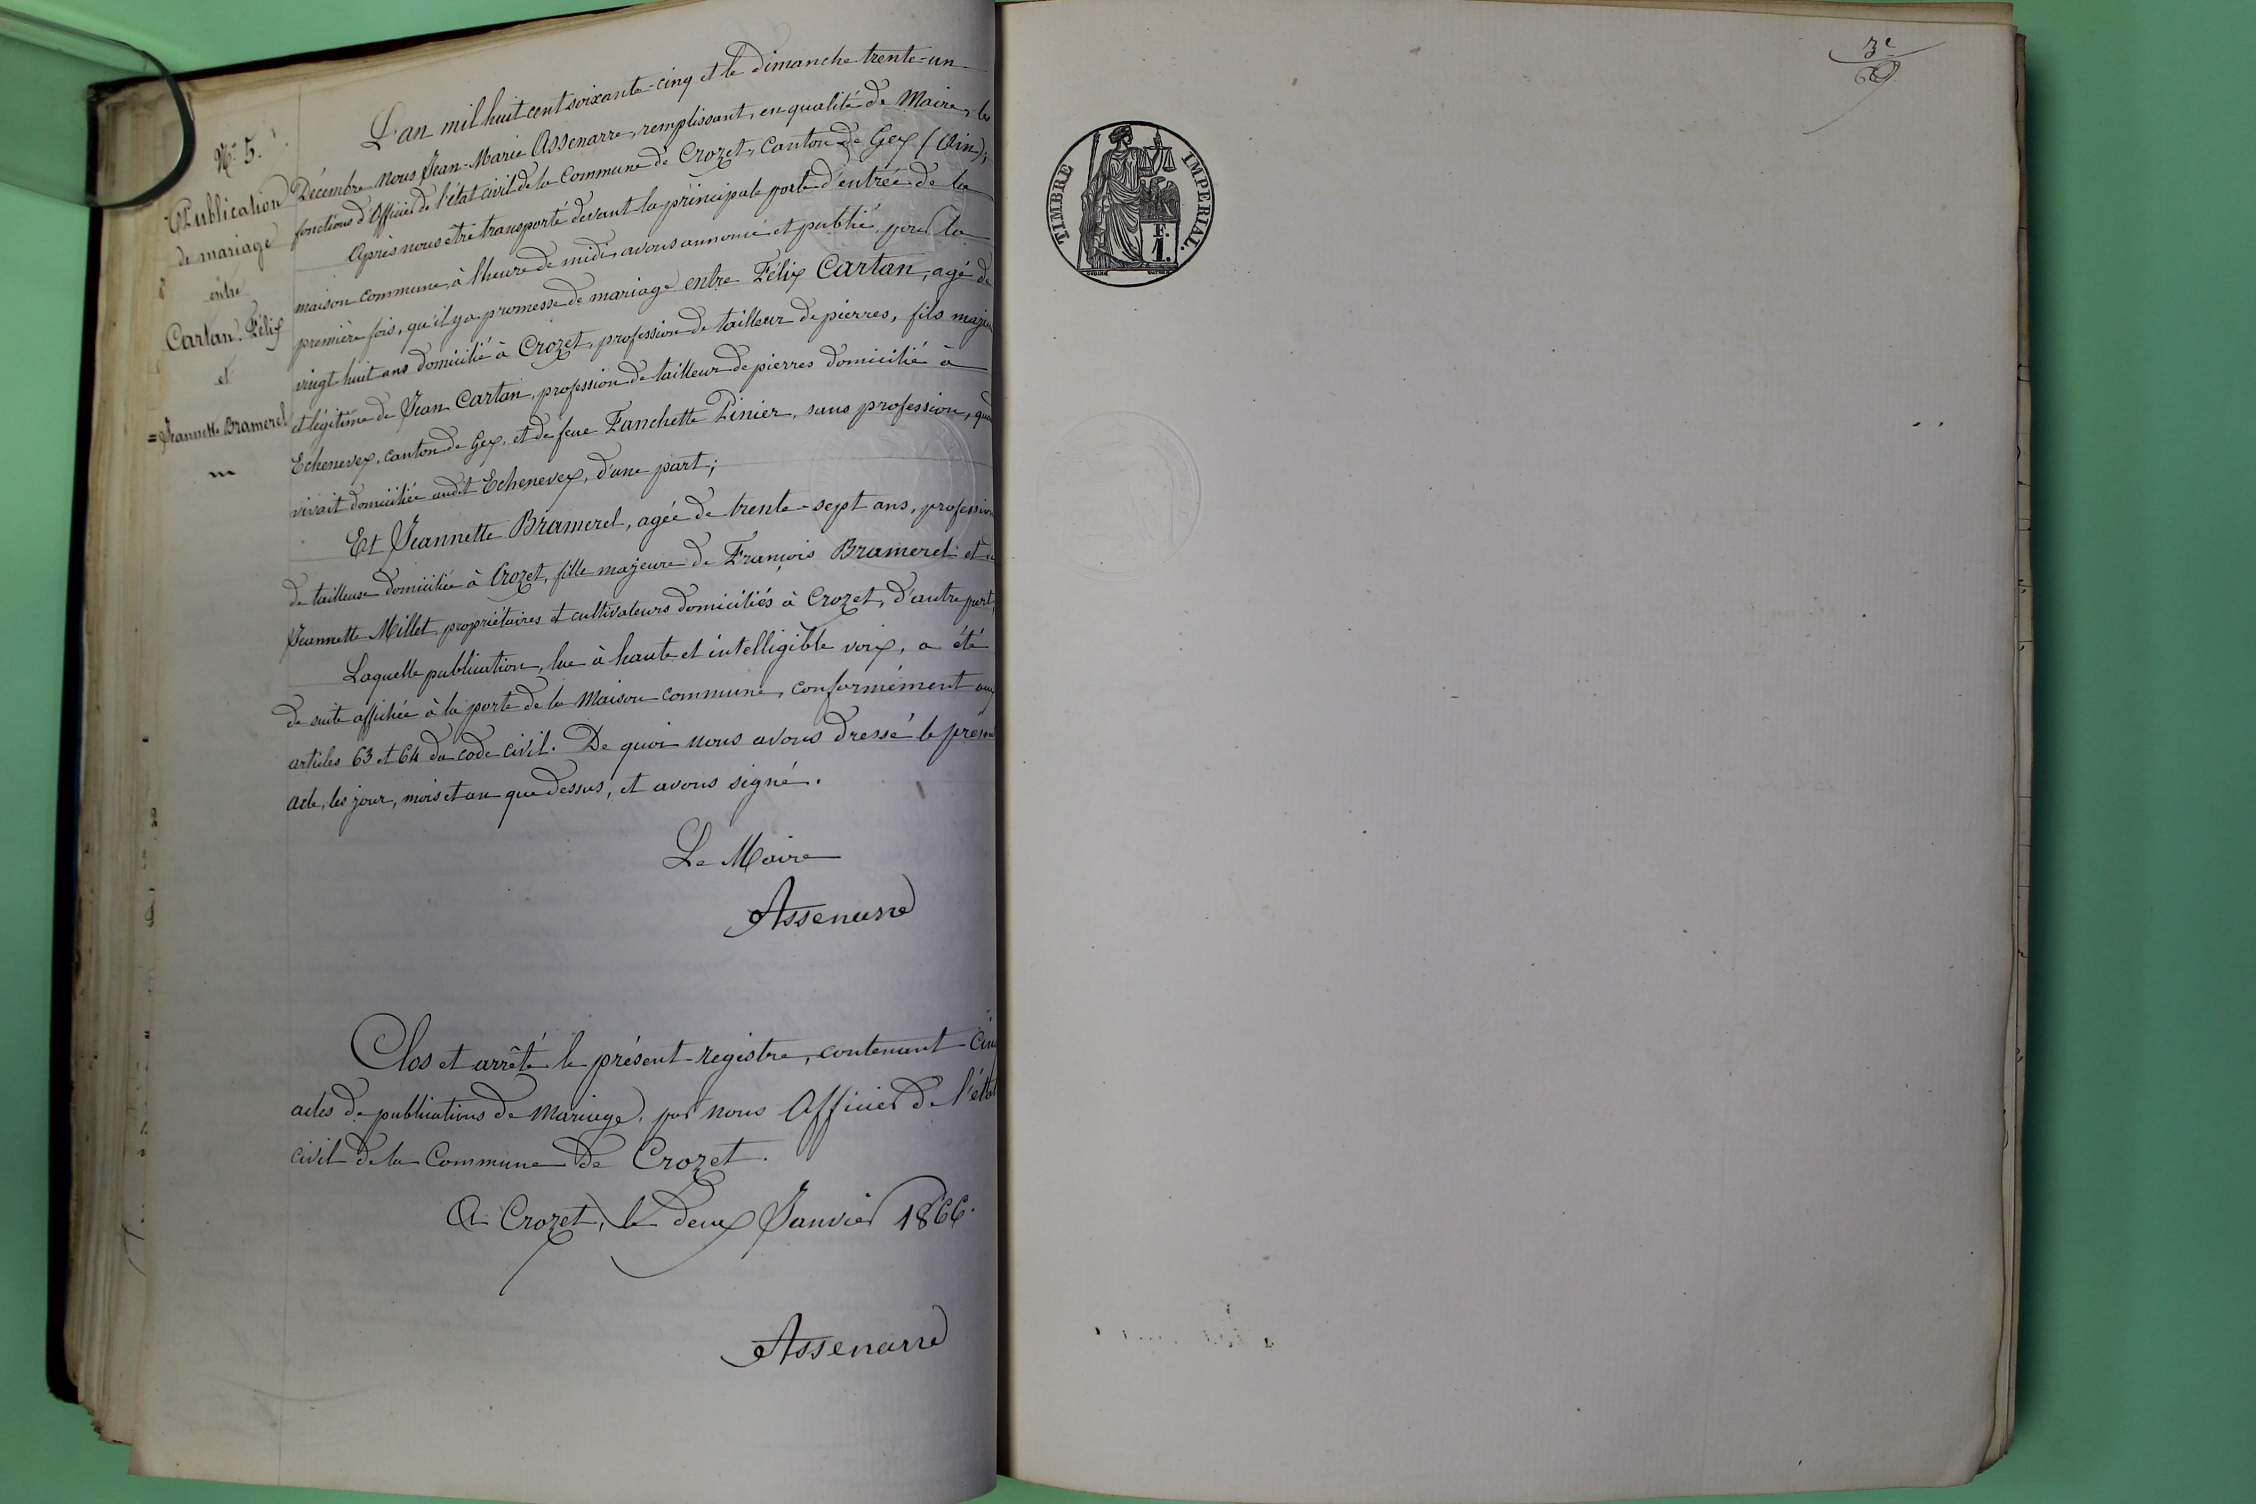 N° 5.
Publication
de mariage
entre
Cartan Félix
et
Jeannette Bramerel
L'an mil huit cent soixante-cinq et le dimanche trente-un
Décembre nous Jean-Marie Assenarre, remplissant, en qualité de Maire, les
fonctions d'Officier de l'état civil de la Commune de Crozet, Canton de Gex (Ain);
Après nous être transporté devant la principale porte d'entrée de la
maison commune, à l'heure de midi, avons annoncé et publié, pour la
première fois, qu'il y a promesse de mariage entre Félix Cartan, agé de
vingt huit ans domicilié à Crozet, profession de tailleur de pierres, fils majeur
et légitime de Jean Cartan, profession de tailleur de pierres domicilié à
Echenevex, canton de Gex, et de feue Fanchette Pinier, sans profession, quand
vivait domiciliée audit Echenevex, d'une part;
Et Jeannette Bramerel, agée de trente-sept ans, profession
de tailleuse domiciliée à Crozet, fille majeure de François Bramerel et de
Jeannette Millet, propriétaires et cultivateurs domiciliés à Crozet, d'autre part,
Laquelle publication, lue à haute et intelligible voix, a été
de suite affichée à la porte de la Maison commune, conformément aux
articles 63 et 64 du code civil. De quoi nous avons dressé le présent
acte, les jour, mois et an que dessus, et avons signé.
Le Maire
Assenarre
Clos et arrêté le présent registre, contenant Cinq
actes de publications de Mariage, par nous Officier de l'état
civil de la Commune de Crozet.
A Crozet, le deux Janvier 1866.
Assenarre
3e
TIMBRE IMPERIAL.
F.
1.